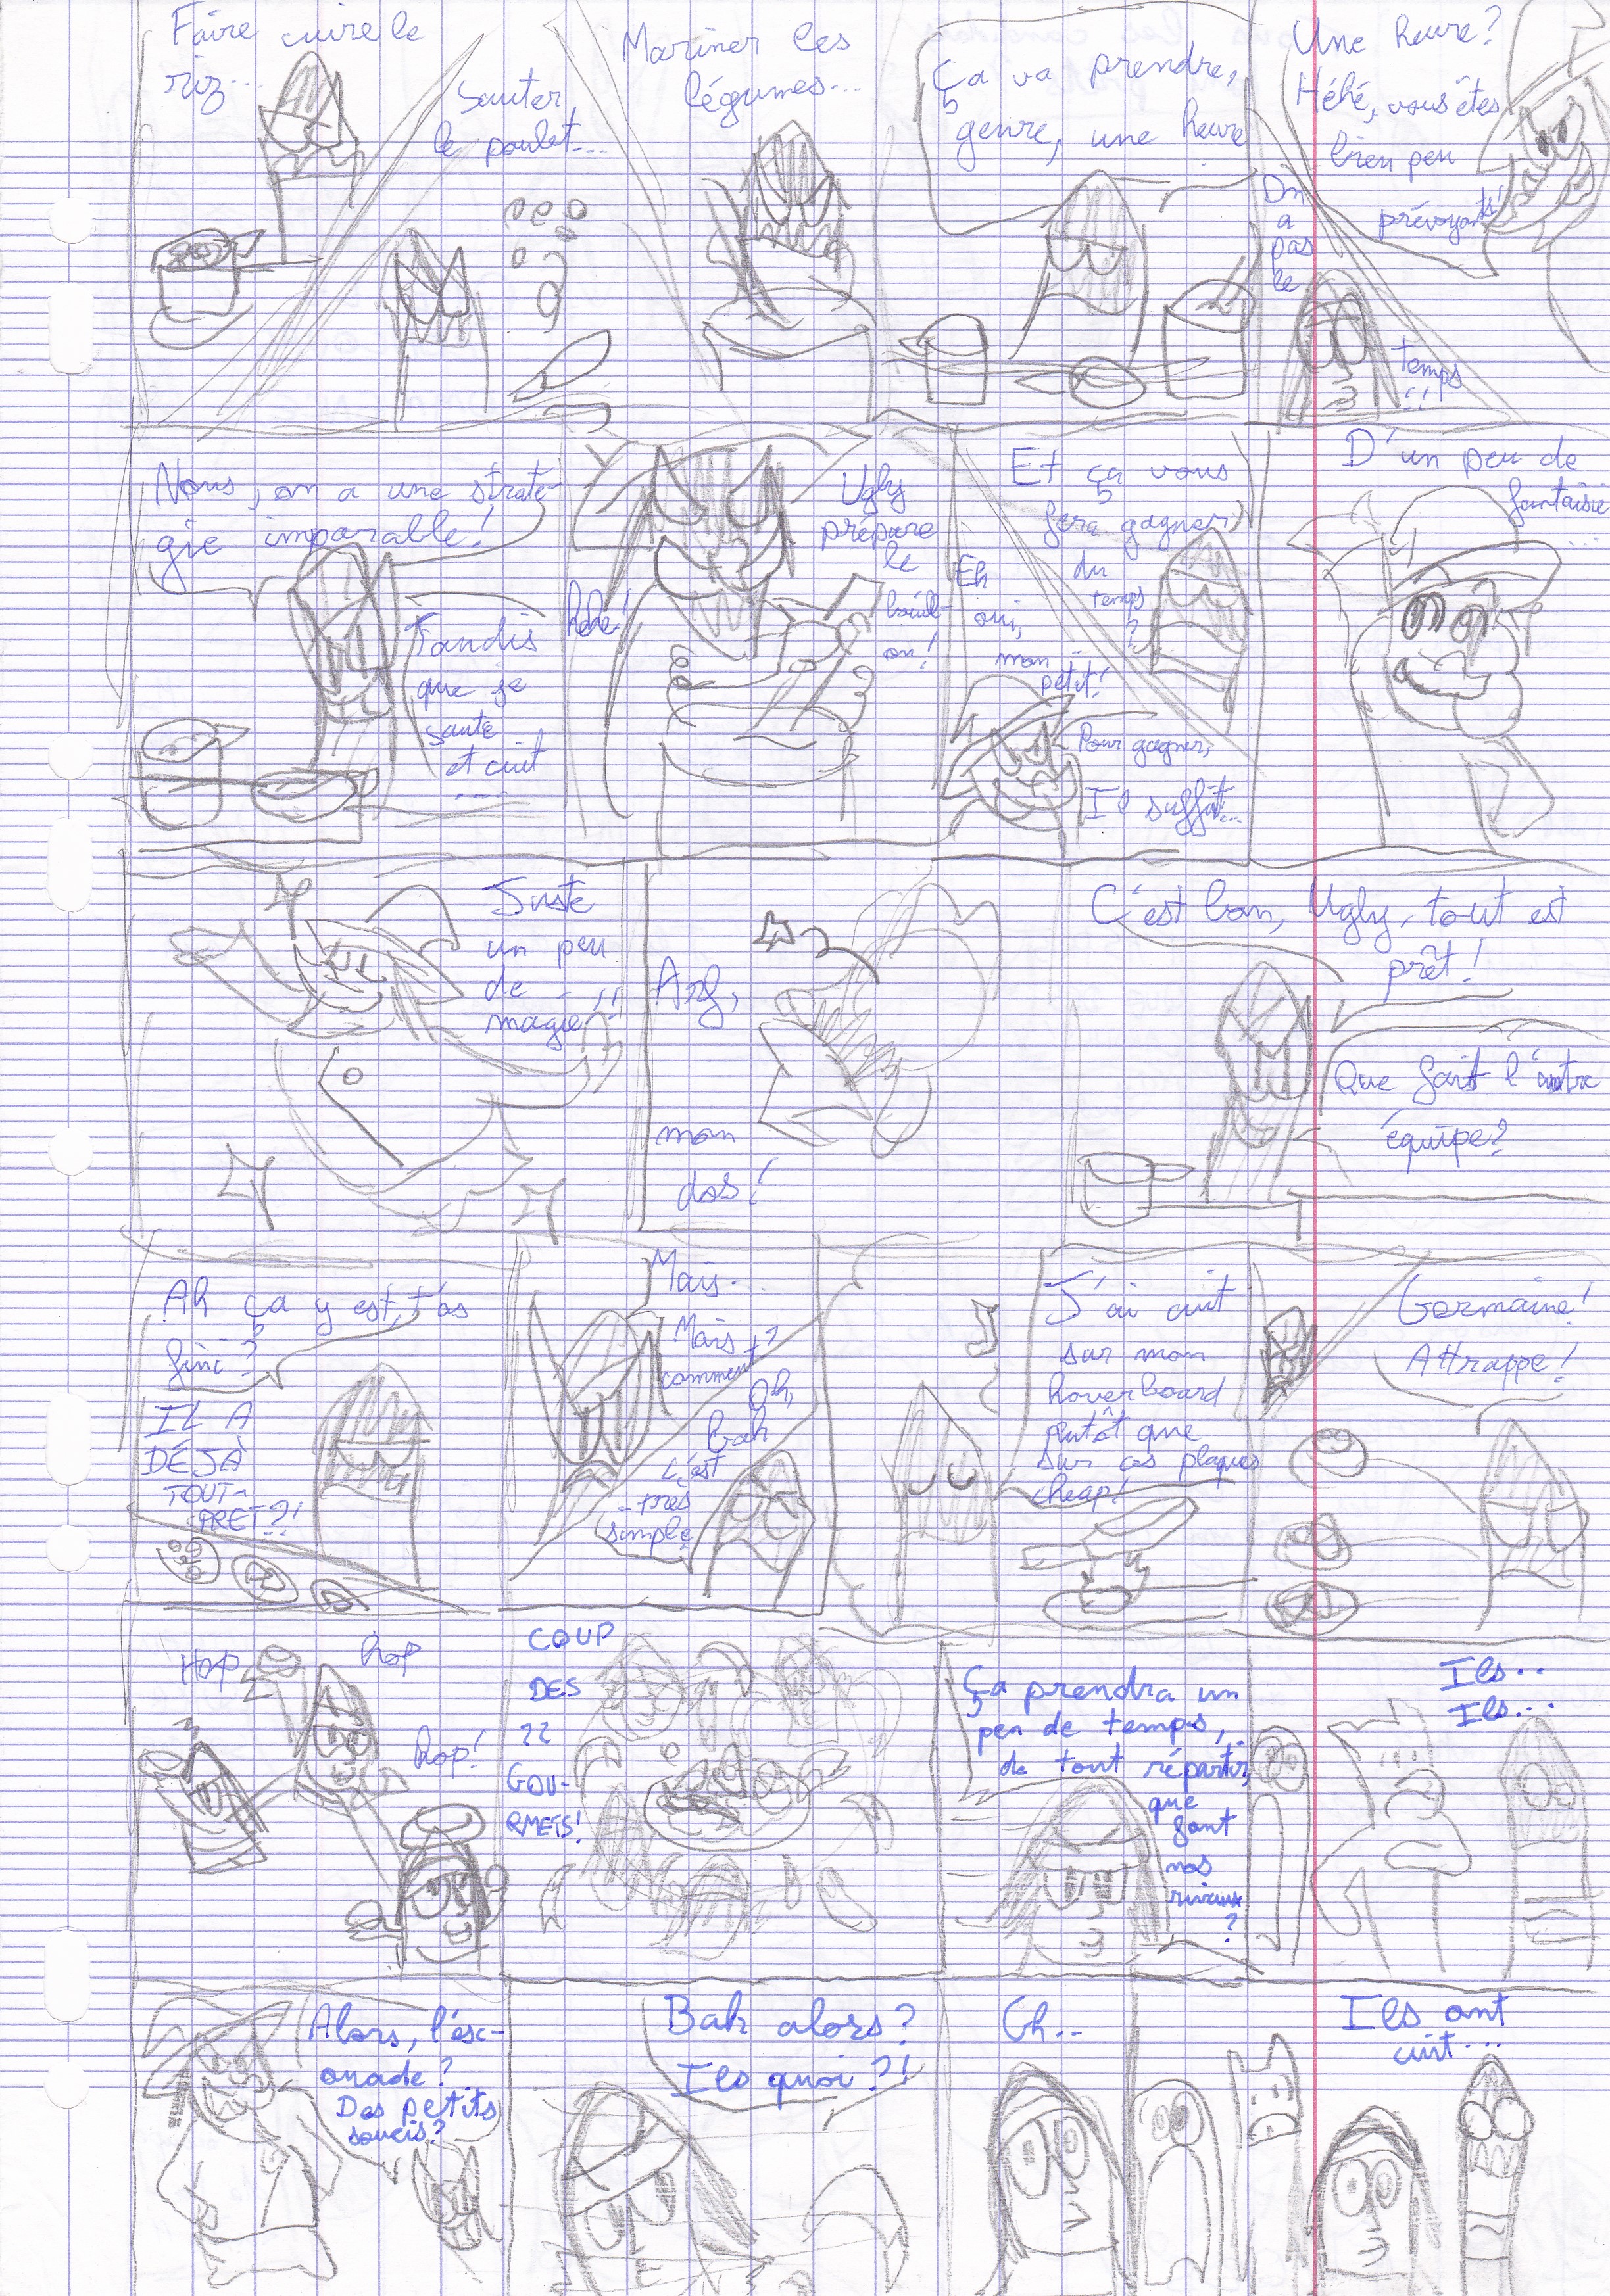 Faire cuire le
riz...
Sauter
le poulet...
Mariner les
légumes...
Ça va prendre,
genre, une heure
On
a
pas
le
temps
!!
Une heure?
Héhé, vous êtes
bien peu
prévoyants!
Nous, on a une straté-
gie imparable!
Tandis
que je
saute
et cuit
....
héhé!
Ugly
prépare
le
bouill-
on!
Et ça vous
fera gagner
du
temps
?
Eh
oui,
mon
petit!
Pour gagner,
Il suffit...
D'un peu de
fantaisie
...
Juste
un peu
de
magie!!
Arg,
mon
dos!
C'est bon, Ugly, tout est
prêt!
Que fait l'autre
équipe?
Ah ça y est, t'as
fini?
IL A
DÉJÀ
TOUT
PRET?!
Mais...
Mais
comment?
Oh,
bah
c'est
très
simple
J'ai cuit
sur mon
hoverboard
plutôt que
sur ces plaques
cheap!
Germaine!
Attrappe!
Hop
hop
hop!
COUP
DES
22
GOU-
RMETS!
Ça prendra un
peu de temps,
de tout répartir,
que
font
nos
rivaux
?
Ils...
Ils...
Alors, l'esc-
ouade?
Des petits
soucis?
Bah alors?
Ils quoi?!
Eh...
Ils ont
cuit...